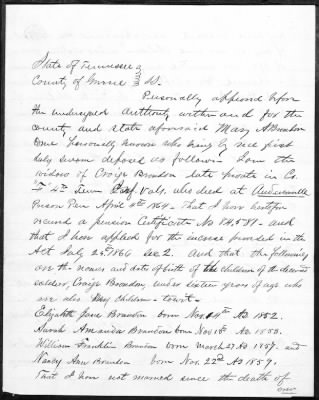 State of Tennessee
County of Greene } SS.
Personally appeared before
the undersigned authority within and for the
county and state aforesaid Mary A Brandon
to me personally known who being by me first
duly sworn deposes as follows I am the
widow of Craige Brandon late private in Co.
"F" 4th Tenn Vols. who died at Andersonville
Prison Pen April 8th 1864. That I have heretofore
received a pension Certificate No 84,587. and
that I have applied for the increase provided in the
Act July 25th 1866 Sec. 2. And that the following
are the names and date of birth of the children of the deceased
soldier, Craige Brandon, under sixteen years of age who
are also my children - to wit -
Elizabeth Jane Brandon born Nov. 14th AD 1852.
Sarah Amanda Brandon born Nov 18th AD 1853.
William Franklin Brandon born March 27 AD 1857. and
Nancy Ann Brandon born Nov. 22nd AD 1859.
That I have not married since the death of
over